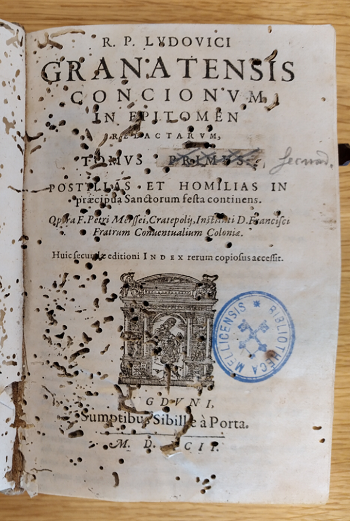 R. P. LVDOVICI
GRANATENSIS
CONCIONVM
IN EPITOMEN
REDACTARVM,
TOMVS PRIMVS. Secund.
POSTILLAS ET HOMILIAS IN
præcipua Sanctorum festa continens.
Opera F. Petri Merssei, Cratepolij, Instituti D. Francisci
Fratrum Conuentualium Coloniæ.
Huic secundæ editioni INDEX rerum copiosus accessit.
BIBLIOTECA MELLICENSIS
GDVNI,
Sumptibus Sibillæ à Porta.
M. D. CII.